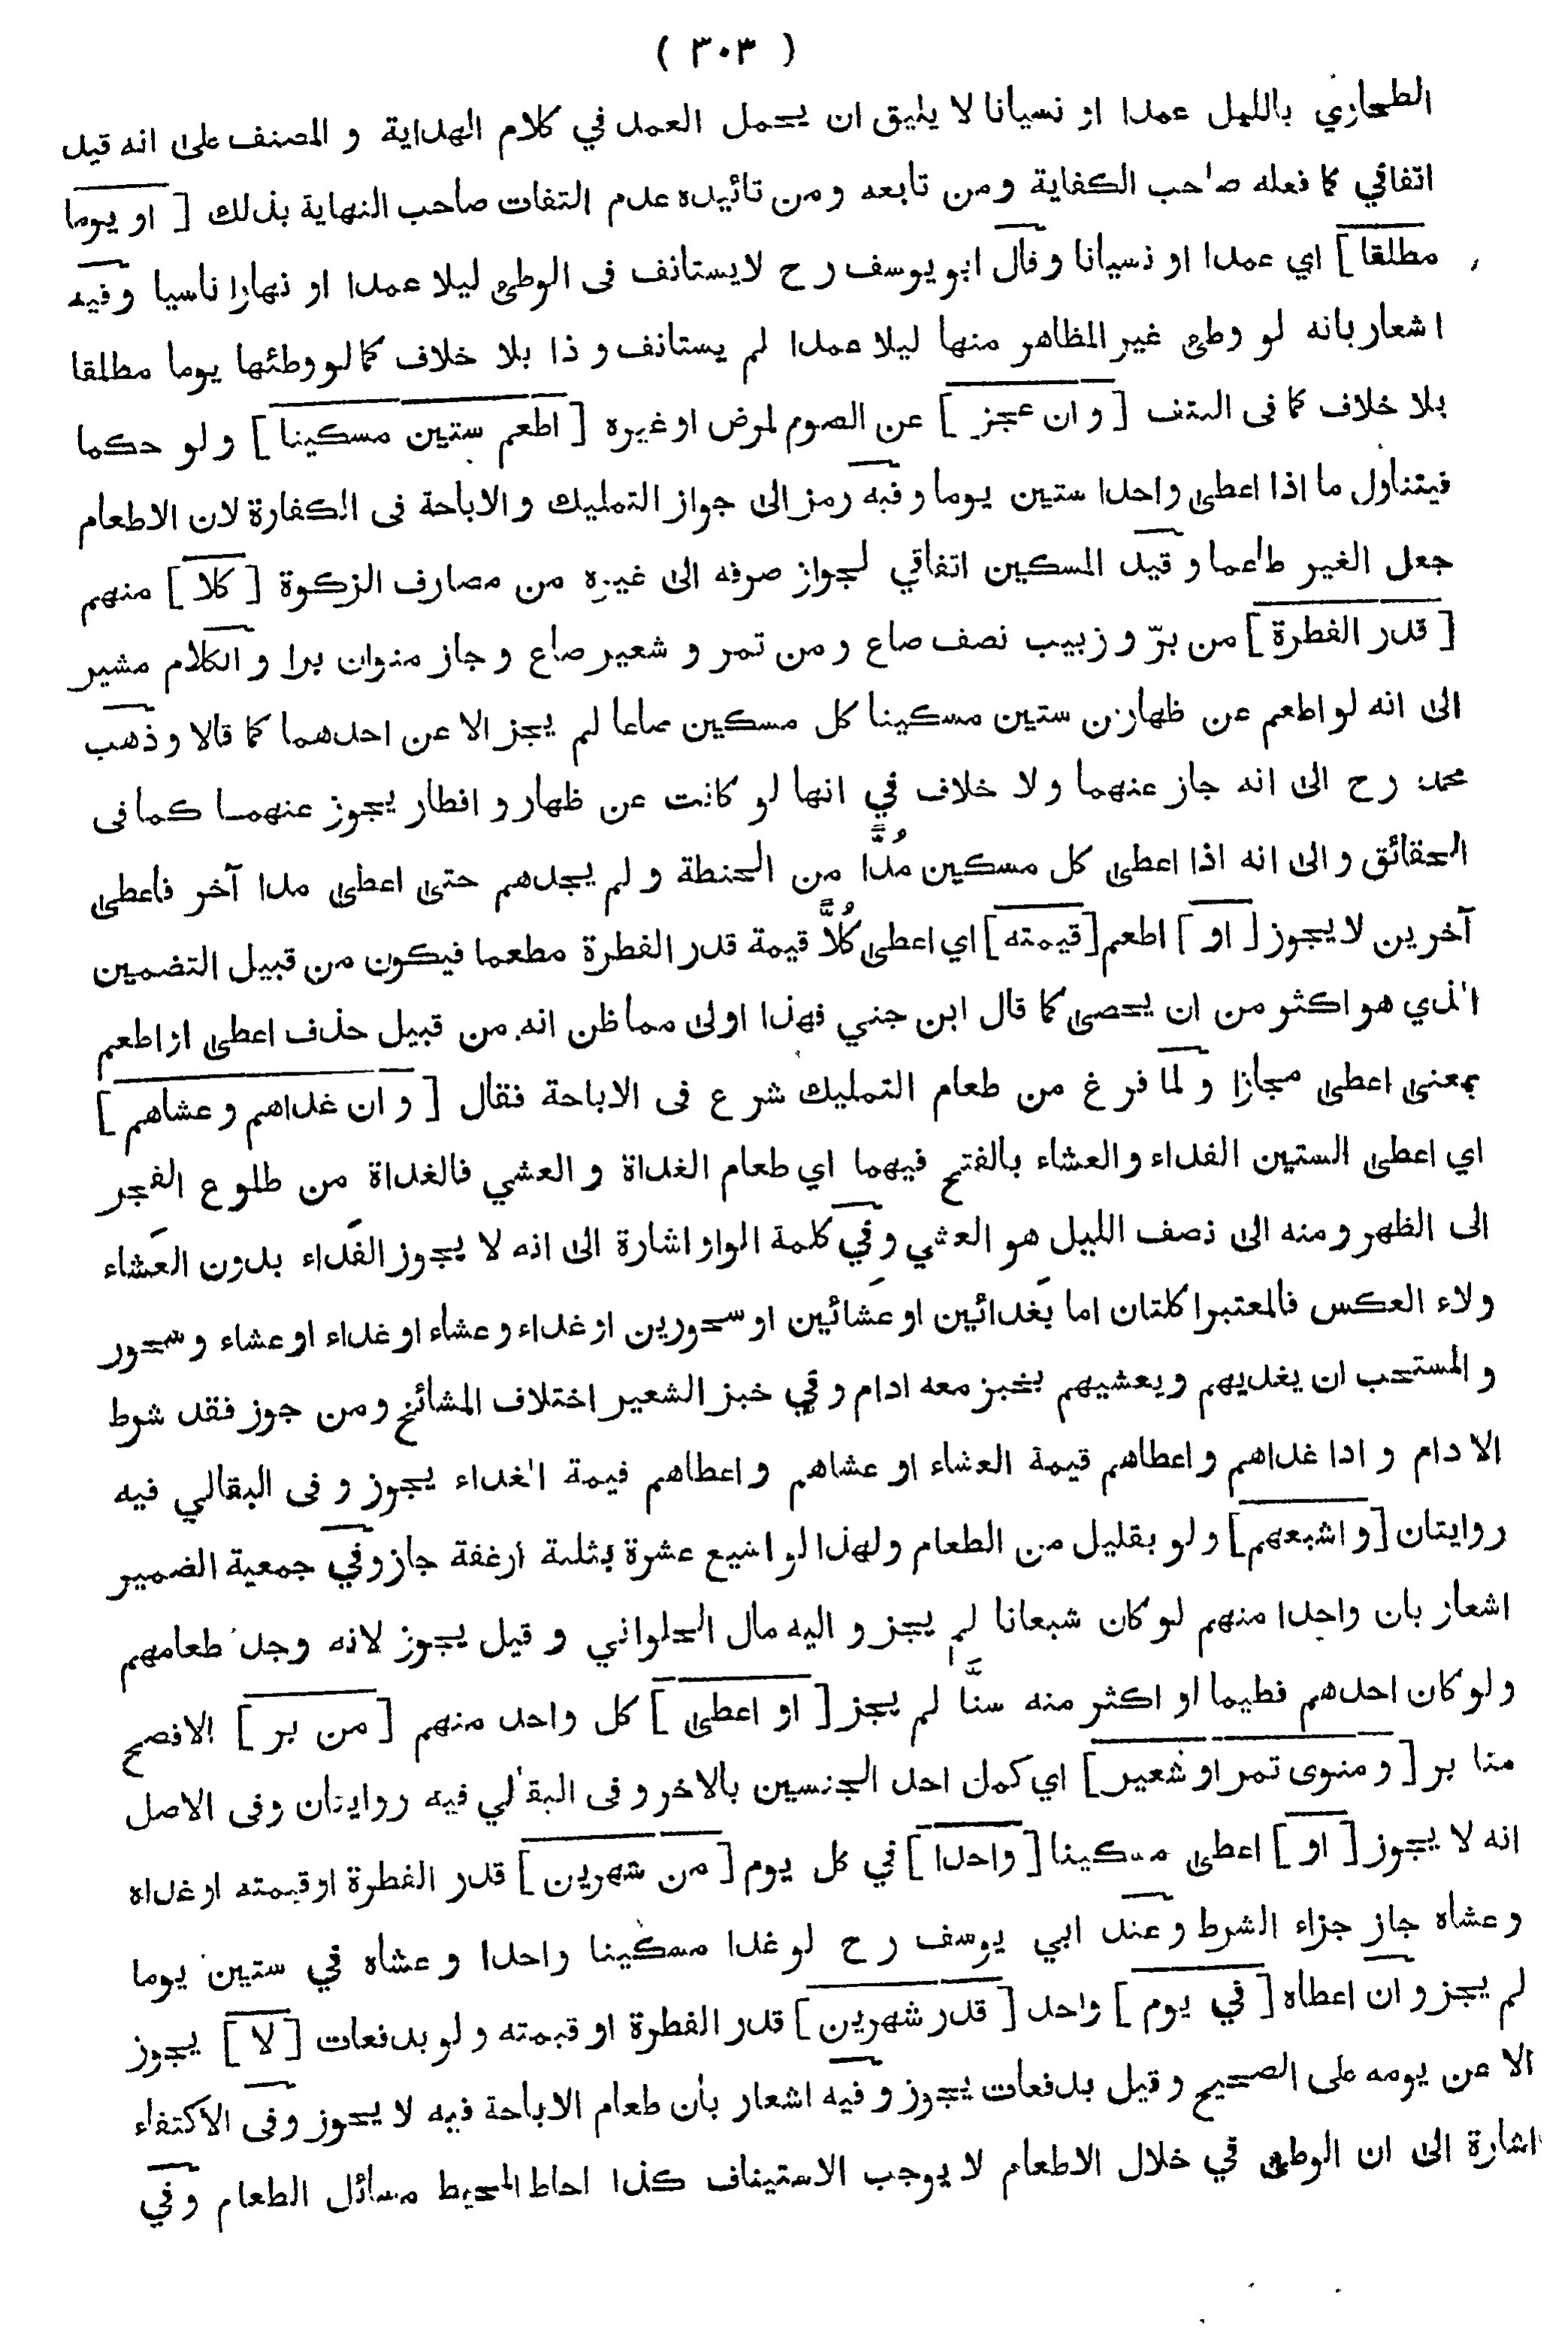 ( ٣٠٣ )
الطحاري بالليل عمدا او نسيانا لا يليق ان يحمل العمد في كلام الهداية و المصنف على انه قيد
اتفاقي كما فعله صاحب الكفاية و من تابعه و من تائيده عدم التفات صاحب النهاية بذلك [ او يوما
مطلقا ] اي عمدا او نسيانا و قال ابو يوسف رح لا يستانف فى الوطى ليلا عمدا او نهارا ناسيا و فيه
اشعار بانه لو وطى غير المظاهر منها ليلا عمدا لم يستانف و ذا بلا خلاف كما لو وطئها يوما مطلقا
بلا خلاف كما فى النتف [ و ان عجز ] عن الصوم لمرض او غيره [ اطعم ستين مسكينا ] و لو حكما
فيتناول ما اذا اعطى واحدا ستين يوما و فيه رمز الى جواز التمليك و الاباحة فى الكفارة لان الاطعام
جعل الغير طاعما و قيد المسكين اتفاقي لجواز صرفه الى غيره من مصارف الزكوة [ كلا ] منهم
[ قدر الفطرة ] من برّ و زبيب نصف صاع و من تمر و شعير صاع و جاز منوان برا و الكلام مشير
الى انه لو اطعم عن ظهارين ستين مسكينا كل مسكين صاعا لم يجز الا عن احدهما كما قالا و ذهب
محمد رح الى انه جاز عنهما و لا خلاف في انها لو كانت عن ظهار و افطار يجوز عنهما كما فى
الحقائق و الى انه اذا اعطى كل مسكين مُدًّا من الحنطة و لم يجدهم حتى اعطى مدا آخر فاعطى
آخرين لا يجوز [ او ] اطعم [ قيمته ] اي اعطى كُلاًّ قيمة قدر الفطرة مطعما فيكون من قبيل التضمين
الذي هو اكثر من ان يحصى كما قال ابن جني فهذا اولى مما ظن انه من قبيل حذف اعطى او اطعم
بمعنى اعطى مجازا و لما فرغ من طعام التمليك شرع فى الاباحة فقال [ و ان غداهم و عشاهم ]
اي اعطى الستين الغداء و العشاء بالفتح فيهما اي طعام الغداة و العشي فالغداة من طلوع الفجر
الى الظهر و منه الى نصف الليل هو العشي و في كلمة الواو اشارة الى انه لا يجوز الغَداء بدون العَشاء
و لاء العكس فالمعتبر اكلتان اما بغَدائين او عَشائين او سحورين او غداء و عشاء او غداء او عشاء و سحور
و المستحب ان يغديهم و يعشيهم بخبز معه ادام و في خبز الشعير اختلاف المشائخ و من جوز فقد شرط
الادام و اذا غداهم و اعطاهم قيمة العشاء او عشاهم و اعطاهم قيمة الغداء يجوز و فى البقالي فيه
روايتان [ و اشبعهم ] و لو بقليل من الطعام و لهذا لو اشبع عشرة بثلثة ارغفة جاز و في جمعية الضمير
اشعار بان واحدا منهم لو كان شبعانا لم يجز و اليه مال الحلواني و قيل يجوز لانه وجد طعامهم
و لو كان احدهم فطيما او اكثر منه سنَّا لم يجز [ او اعطى ] كل واحد منهم [ من بر ] الافصح
منا بر [ و منوى تمر او شعير ] اي كمل احد الجنسين بالاخر و فى البقالي فيه روايتان و فى الاصل
انه لا يجوز [ او ] اعطى مسكينا [ واحدا ] في كل يوم [ من شهرين ] قدر الفطرة او قيمته او غداه
و عشاه جاز جزاء الشرط و عند ابي يوسف رح لو غدا مسكينا واحدا و عشاه في ستين يوما
لم يجز و ان اعطاه [ في يوم ] واحد [ قدر شهرين ] قدر الفطرة او قيمته و لو بدفعات [ لا ] يجوز
الا عن يومه على الصحيح و قيل بدفعات يجوز و فيه اشعار بأن طعام الاباحة فيه لا يجوز و فى الاكتفاء
اشارة الى ان الوطى في خلال الاطعام لا يوجب الاستيناف كذا احاط المحيط مسائل الطعام و في